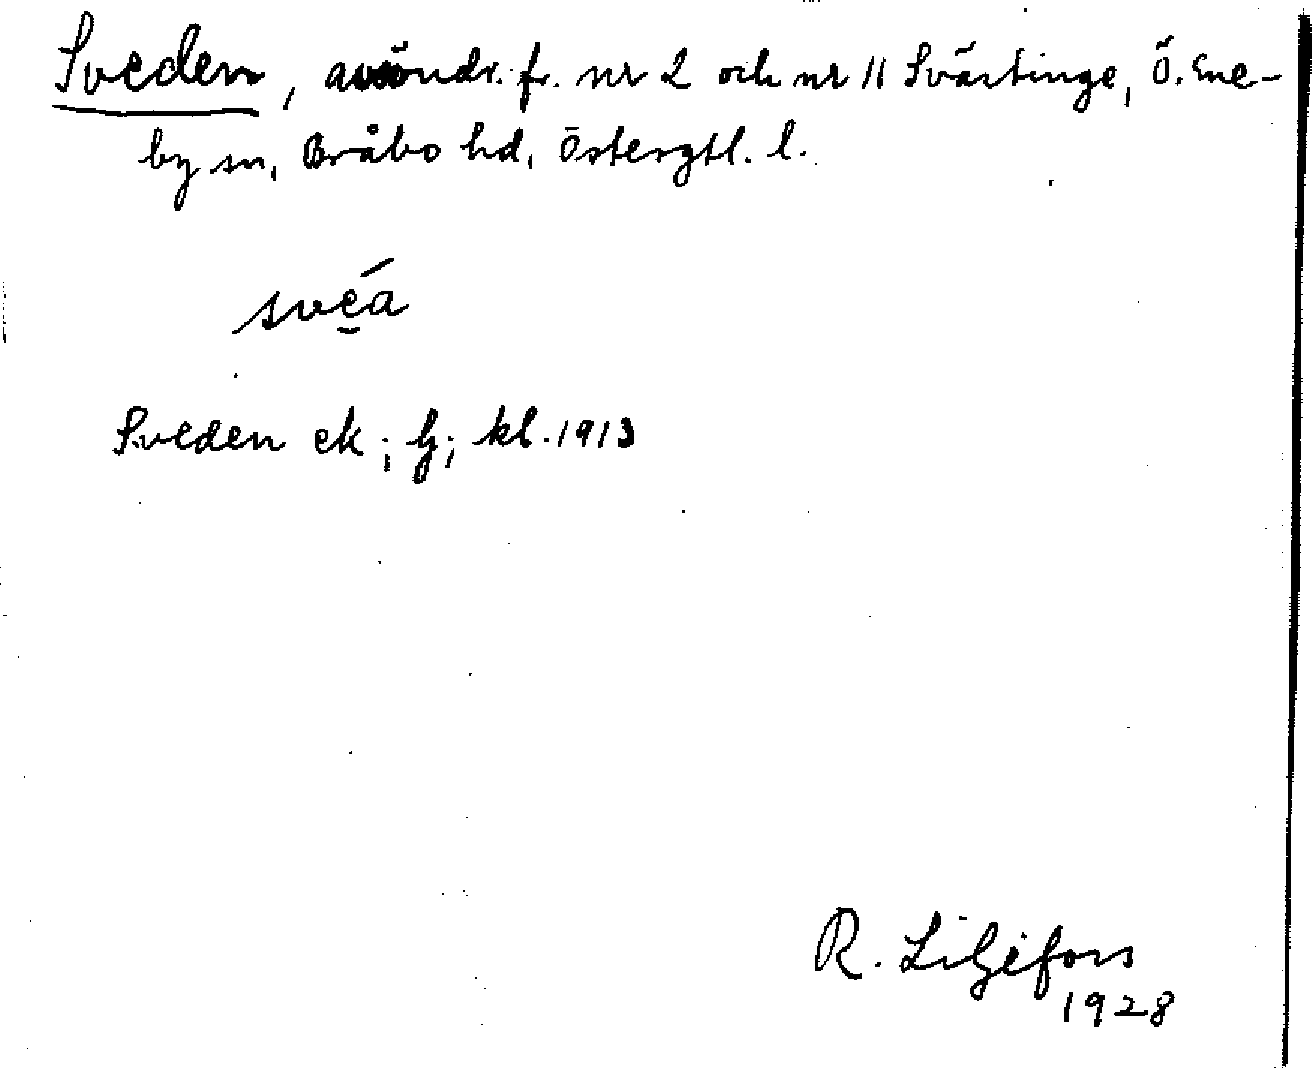 Sveden, avsöndr. fr. nr 2 och nr 11 Svärtinge, Ö. Ene-
by sn, Bråbo hd, Östergtl. l.
svea
Sveden ek; lj; kl. 1913
R. Liljefors
1928